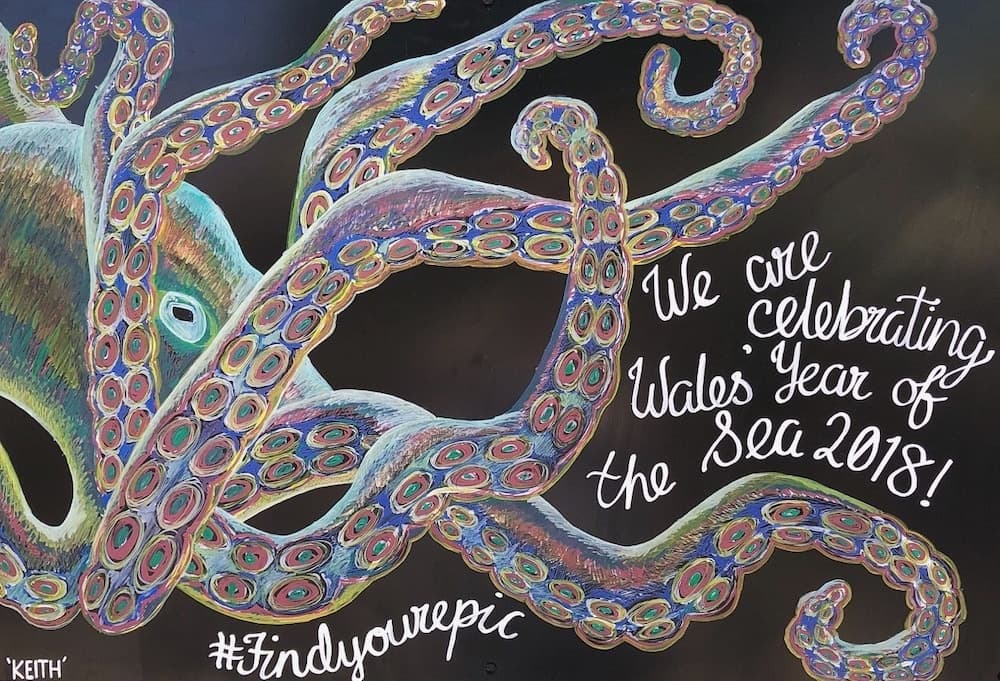 We are
celebrating
Wales' Year of
the Sea 2018!
#Findyourepic
'KEITH'